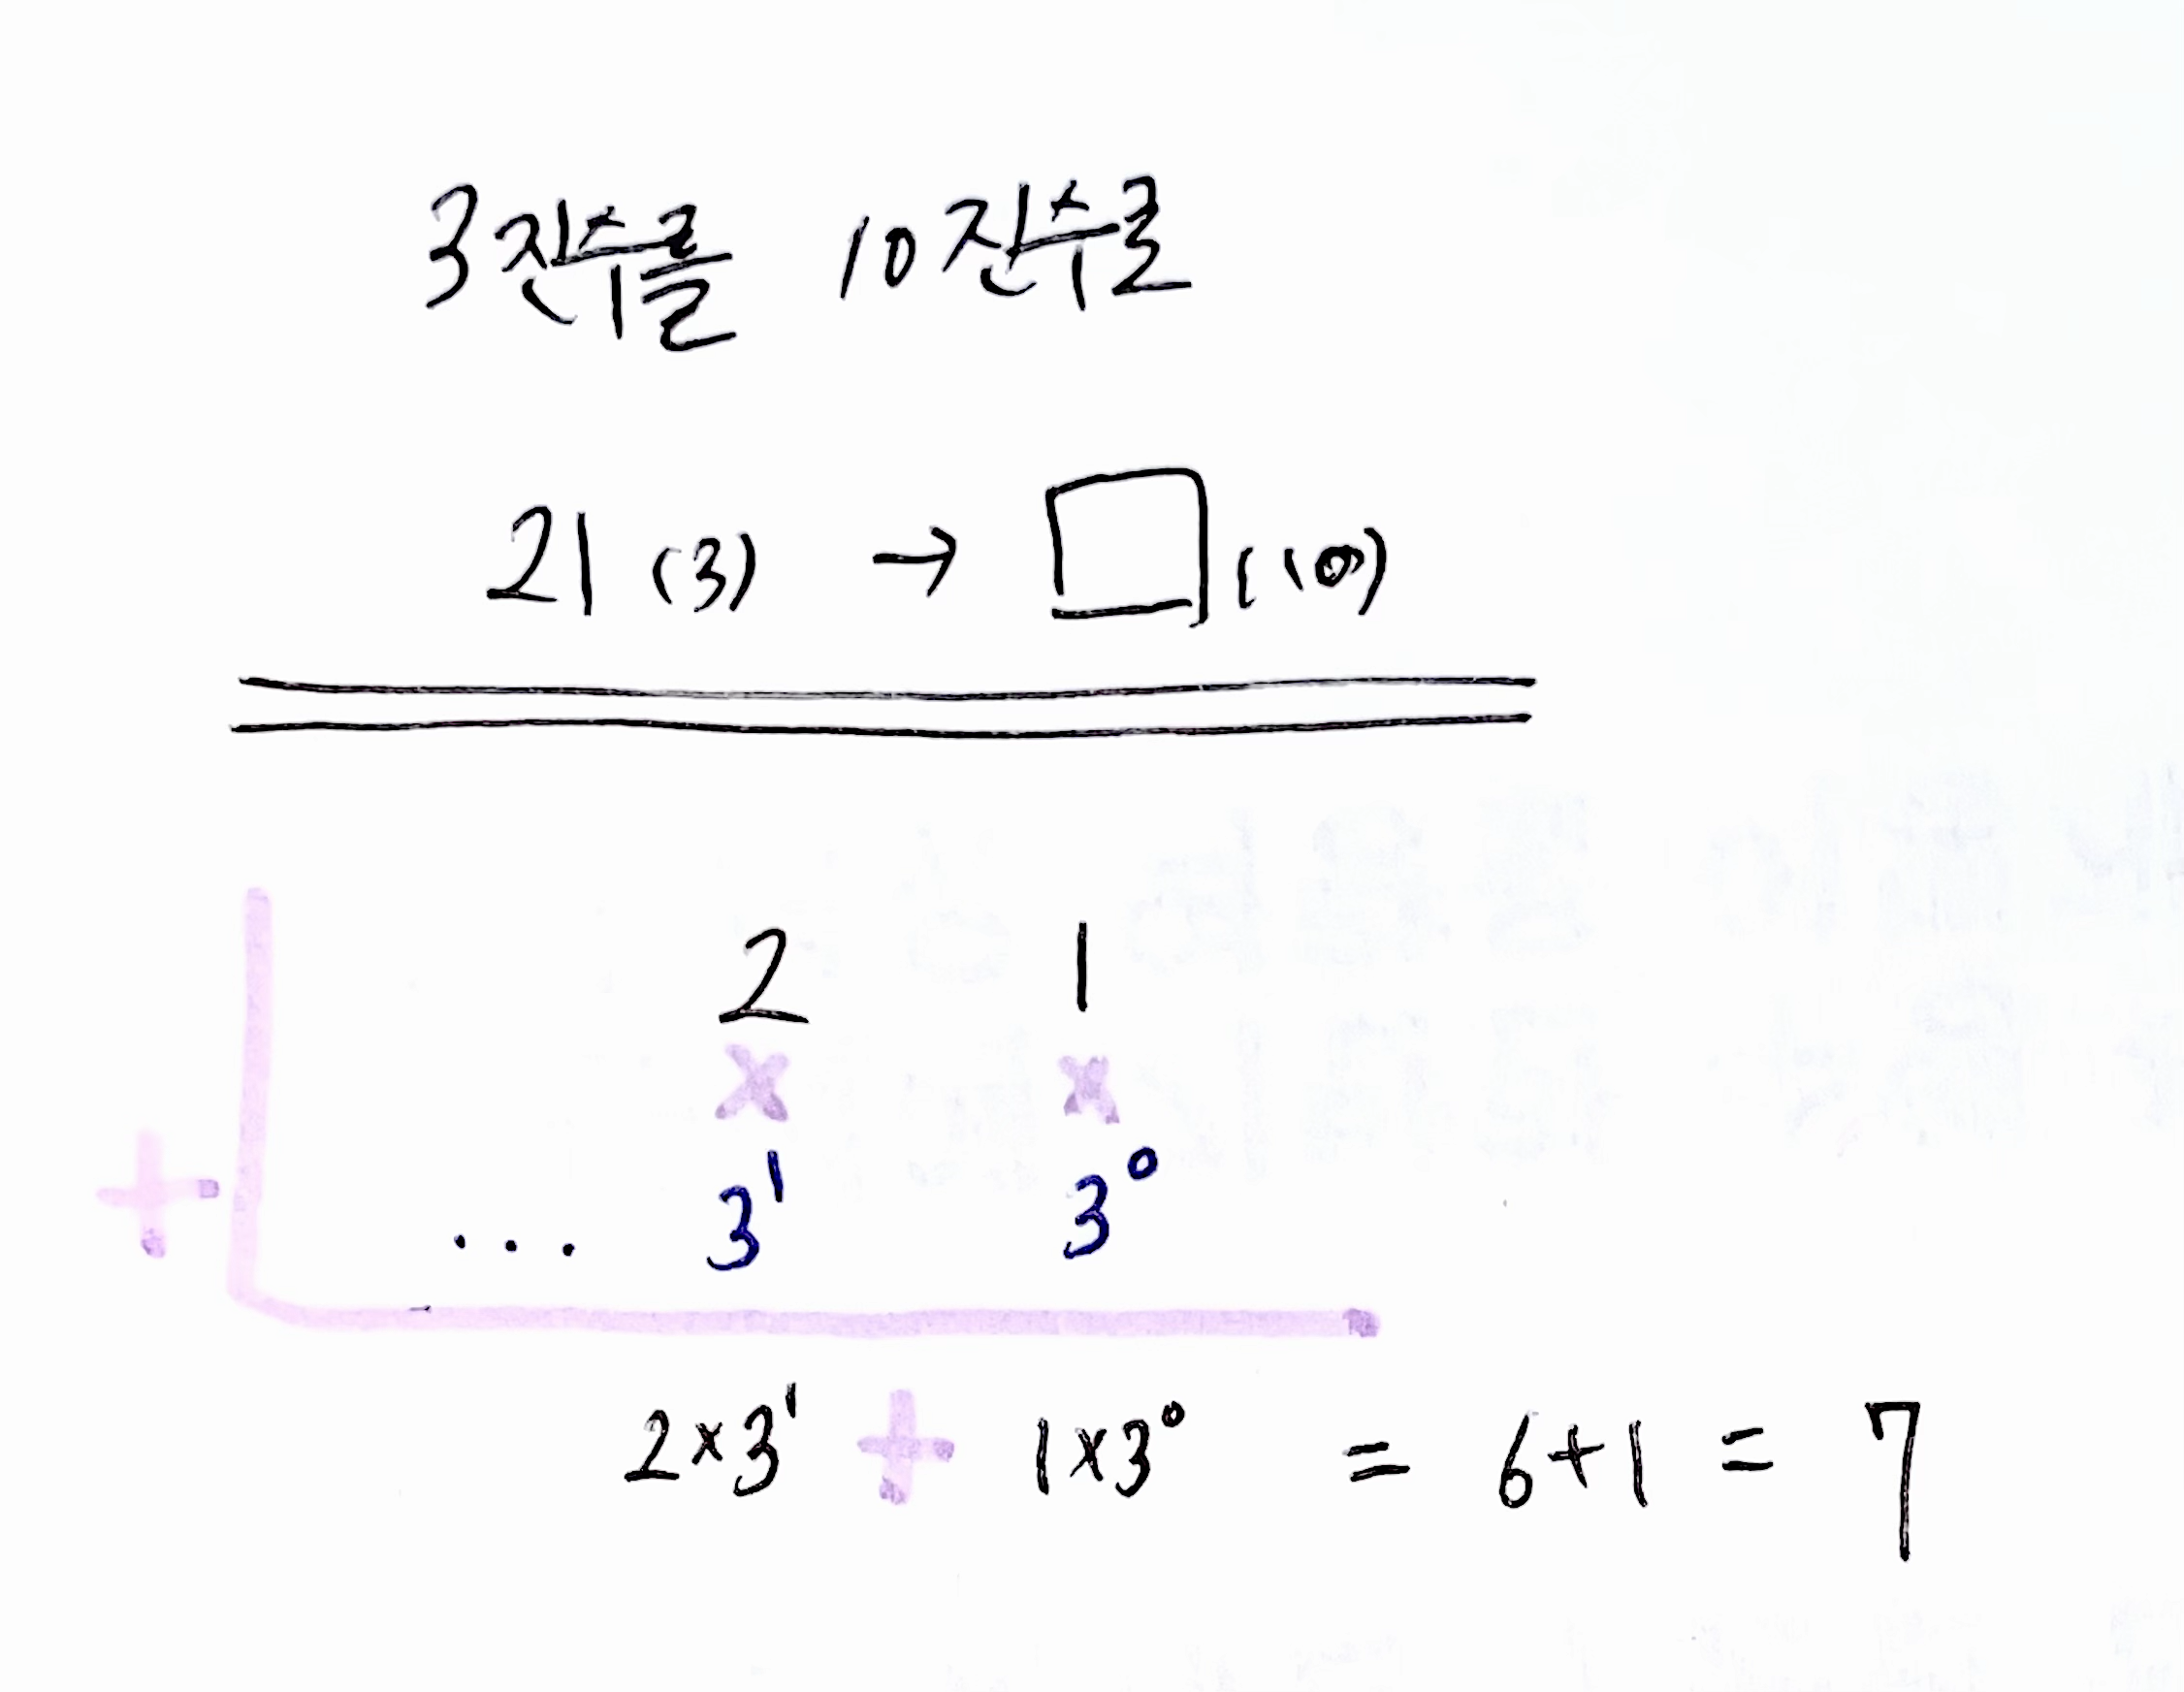 3진수를 10진수로
21 (3) → □ (10)
2 1
× ×
+ ... 3¹ 3⁰
2×3¹ + 1×3⁰ = 6+1 = 7